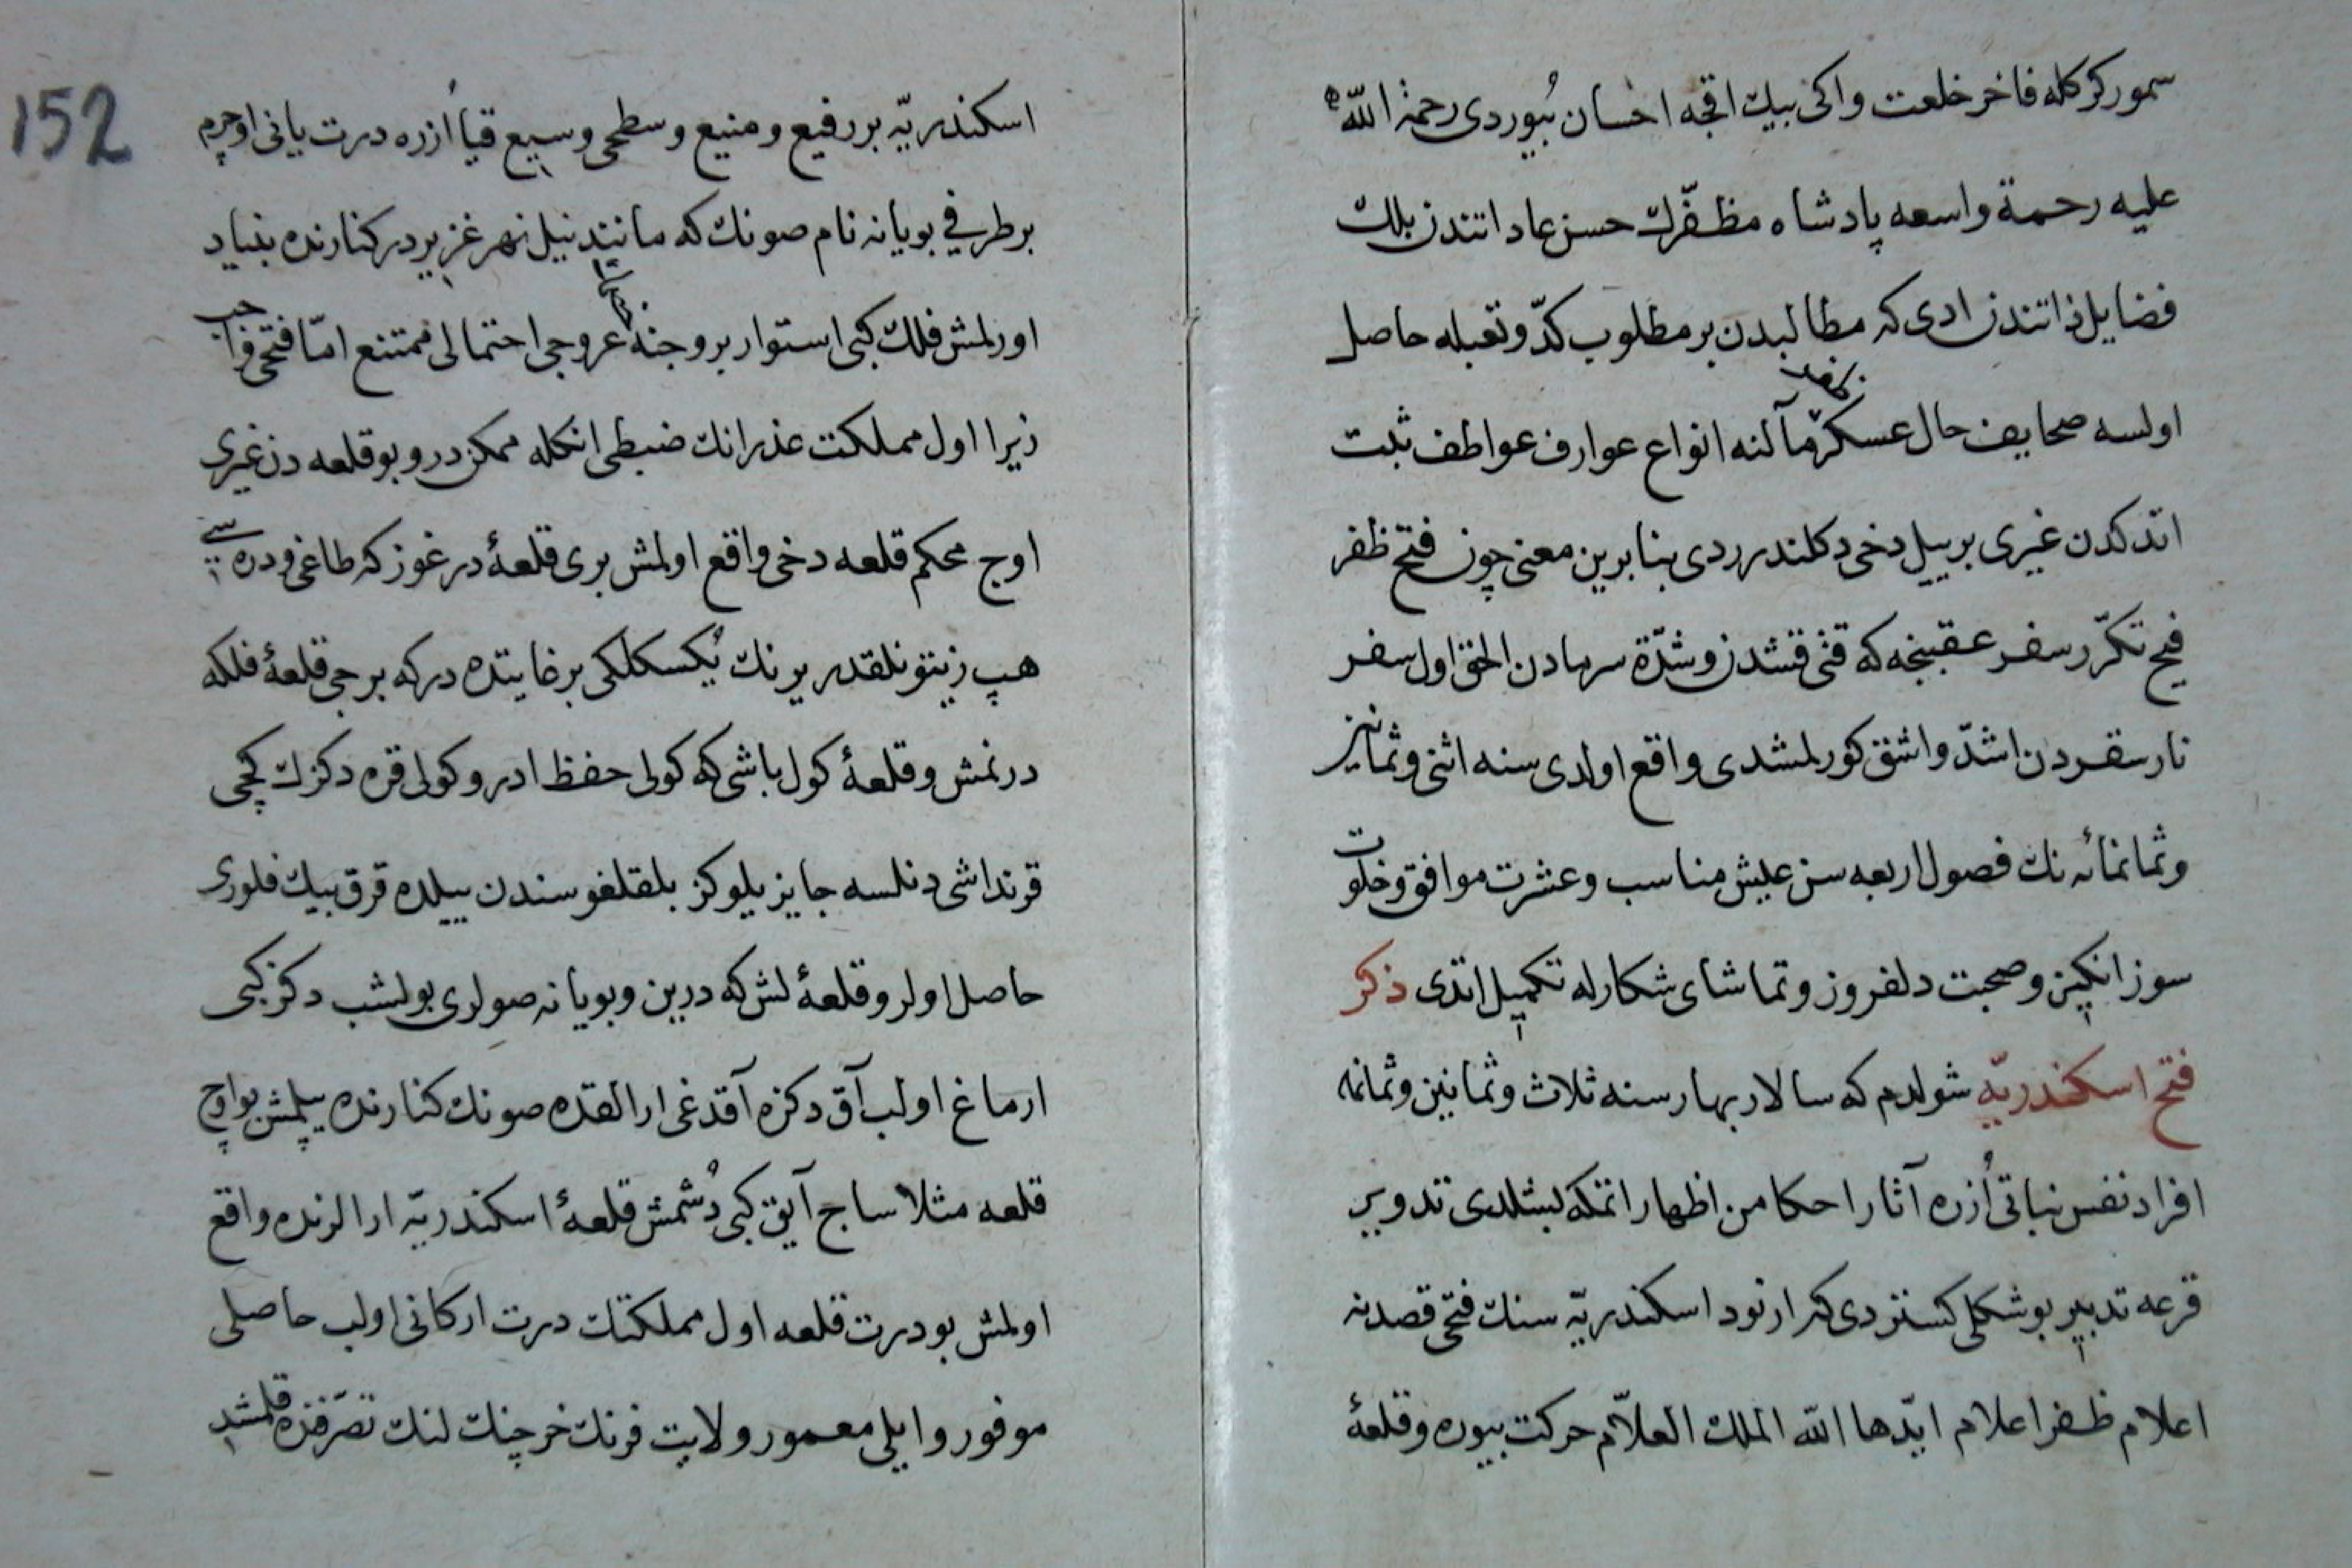 سمور كركله فاخر خلعت واكی بيك اقجه احسان بُيوردی رحمة الله
عليه رحمة واسعه پادشاه مظفّرك حسن عاداتندن بلك
فضايل ذاتندن ادی كه مطالبدن بر مطلوب كدّ وتعبله حاصل
اولسه صحايف حال عسكر مآلنه انواع عوارف عواطف ثبت
اتدكدن غيری بر ييل دخی دكلندرردی بنا برين معنی چون فتح ظفر
فيح تكرّر سفر عقبنجه كه قتی قتشدن وشدّة سرمادن الحق اول سفر
نار سقردن اشدّ واشق كورلمشدی واقع اولدی سنه اثنی وثمانين
وثمانمائه نك فصول اربعه سن عيش مناسب وعشرت موافق وخلوت
سوز انكيز وصحبت دلفروز وتماشای شكارله تكميل اتدی ذكر
فتح اسكندريّه شولدم كه سالار بهار سنه ثلاث وثمانين وثمانمه
افراد نفس نباتی اُزره آثار احكامن اظهار اتمكه بشلدی تدوير
قرعه تدبير بو شكلی كستردی كه ارنود اسكندريّه سنك فتحی قصدنه
اعلام ظفر اعلام ابّدها الله الملك العلاّم حركت بيوره وقلعهٔ
152
اسكندريّه بر رفيع ومنيع وسطحی وسيع قيا اُزره درت يانی اوچرم
بر طرفی بويانه نام صونك كه مانند نيل نهر غزيردر كنارنده بنياد
اورلمش فلك كبی استوار بروجنه عروجی احتمالی ممتنع امّا فتحی واجب
زيرا اول مملكت عذرانك ضبطی انكله ممكن در وبو قلعه دن غيری
اوچ محكم قلعه دخی واقع اولمش بری قلعهٔ درغوز كه طاغی ودره سی
هپ زيتونلقدر يرنك يُكسكلكی بر غايتده دركه برجی قلعهٔ فلكه
درنمش وقلعهٔ كول باشی كه كولی حفظ ادر وكولی قره دكزك كچی
قرنداشی دنلسه جايز يلوكز بلقلغوسندن ييلده قرق بيك فلوری
حاصل اولر وقلعهٔ لش كه درين وبويانه صولری بولشب دكز كبی
ارماغ اولب آق دكزه آقدغی ارالقده صونك كنارنده يپلمش بو اوچ
قلعه مثلا ساج آيق كبی دُشمش قلعهٔ اسكندريّه ارالرنده واقع
اولمش بو درت قلعه اول مملكتك درت اركانی اولب حاصلی
موفور وايلی معمور ولايت فرنك خرچنك لنك تصرّفنده قلمشدی